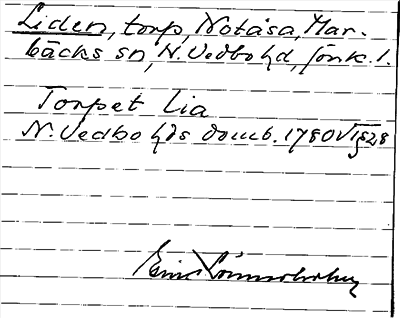 Liden, torp, Notåsa, Mar-
bäcks sn, N. Vedbo hd, Jönk. l.
Torpet Lia
N. Vedbo hds domb. 1780 V/1 § 28